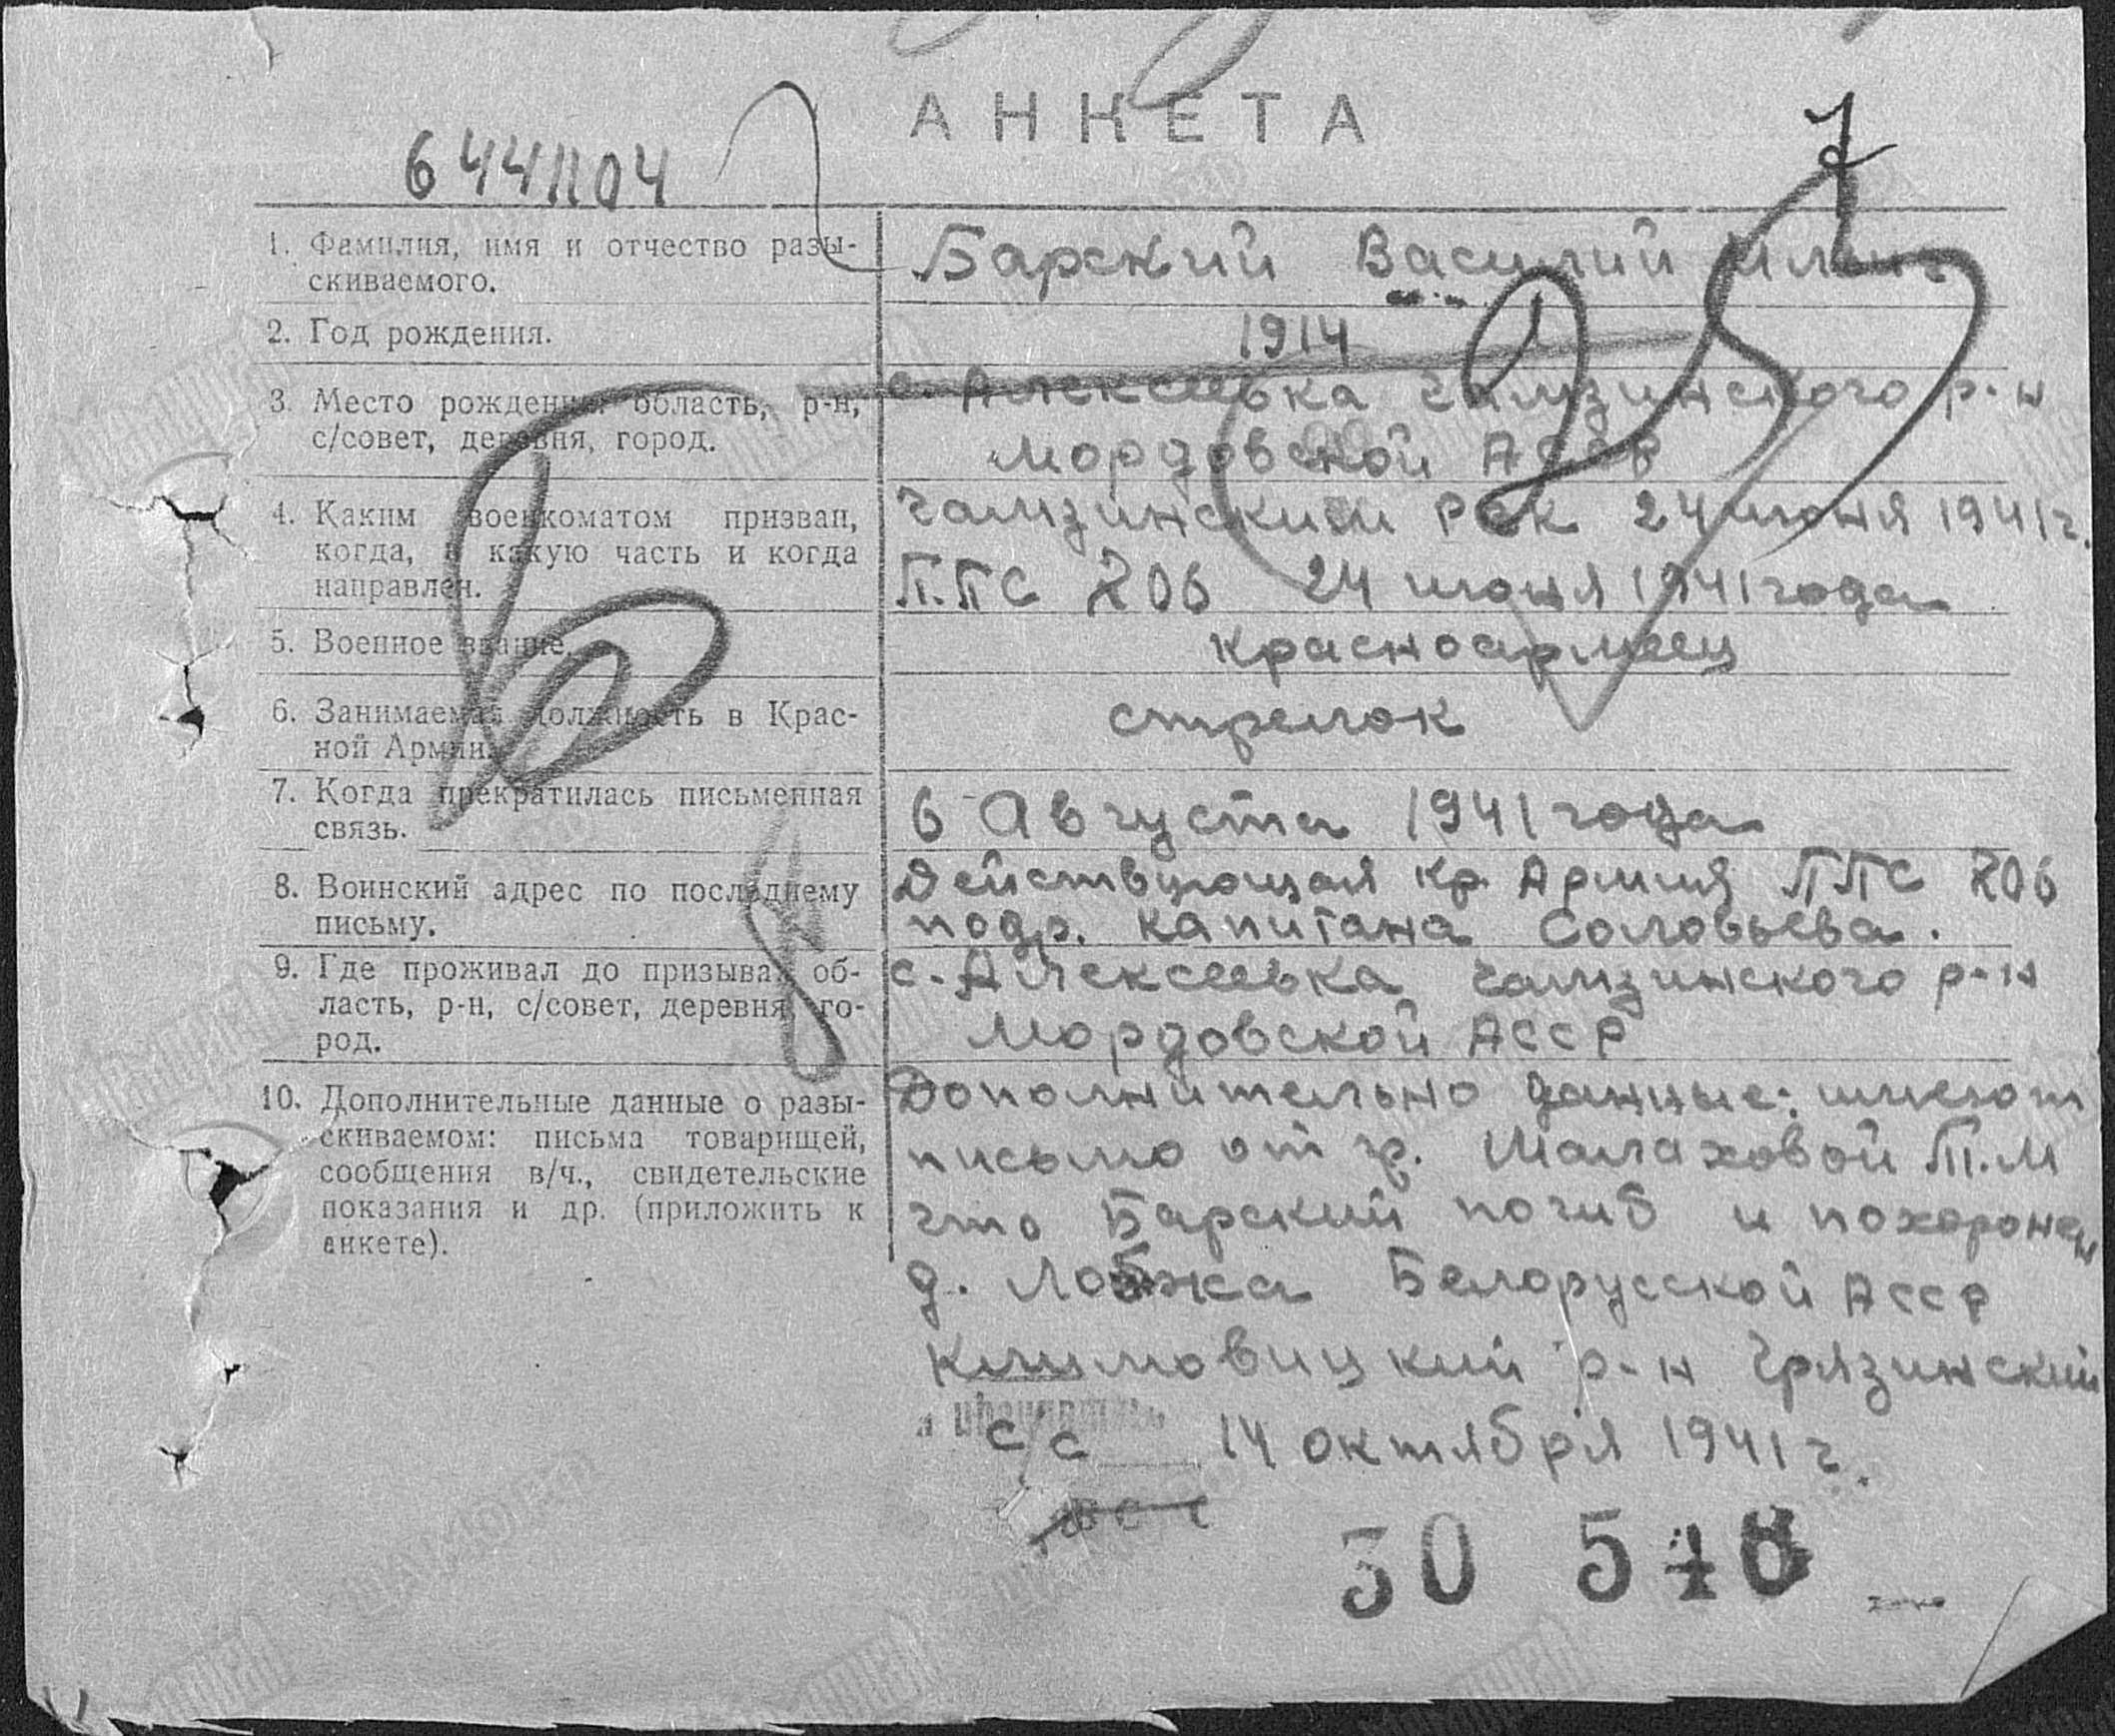 АНКЕТА
6441104
1. Фамилия, имя и отчество разы-
скиваемого.
Барский Василий Ильич
2. Год рождения.
1914
3. Место рождения область, р-н,
с/совет, деревня, город.
с. Алексеевка Чамзинского р-н
Мордовской АССР
4. Каким военкоматом призван,
когда, в какую часть и когда
направлен.
Чамзинским РВК 24 июня 1941 г.
П.ПС 206 24 июня 1941 года
5. Военное звание.
красноармеец
6. Занимаемая должность в Крас-
ной Армии.
стрелок
7. Когда прекратилась письменная
связь.
6 Августа 1941 года
8. Воинский адрес по последнему
письму.
Действующая кр. Армия ППС 206
подр. капитана Соловьева.
9. Где проживал до призыва: об-
ласть, р-н, с/совет, деревня, го-
род.
с. Алексеевка Чамзинского р-н
Мордовской АССР
10. Дополнительные данные о разы-
скиваемом: письма товарищей,
сообщения в/ч., свидетельские
показания и др. (приложить к
анкете).
Дополнительно данные: имеют
письмо от гр. Малаховой Т.М
что Барский погиб и похоронен
д. Лобжа Белорусской АССР
Климовицкий р-н Грязинский
с/с 14 октября 1941 г.
30 5